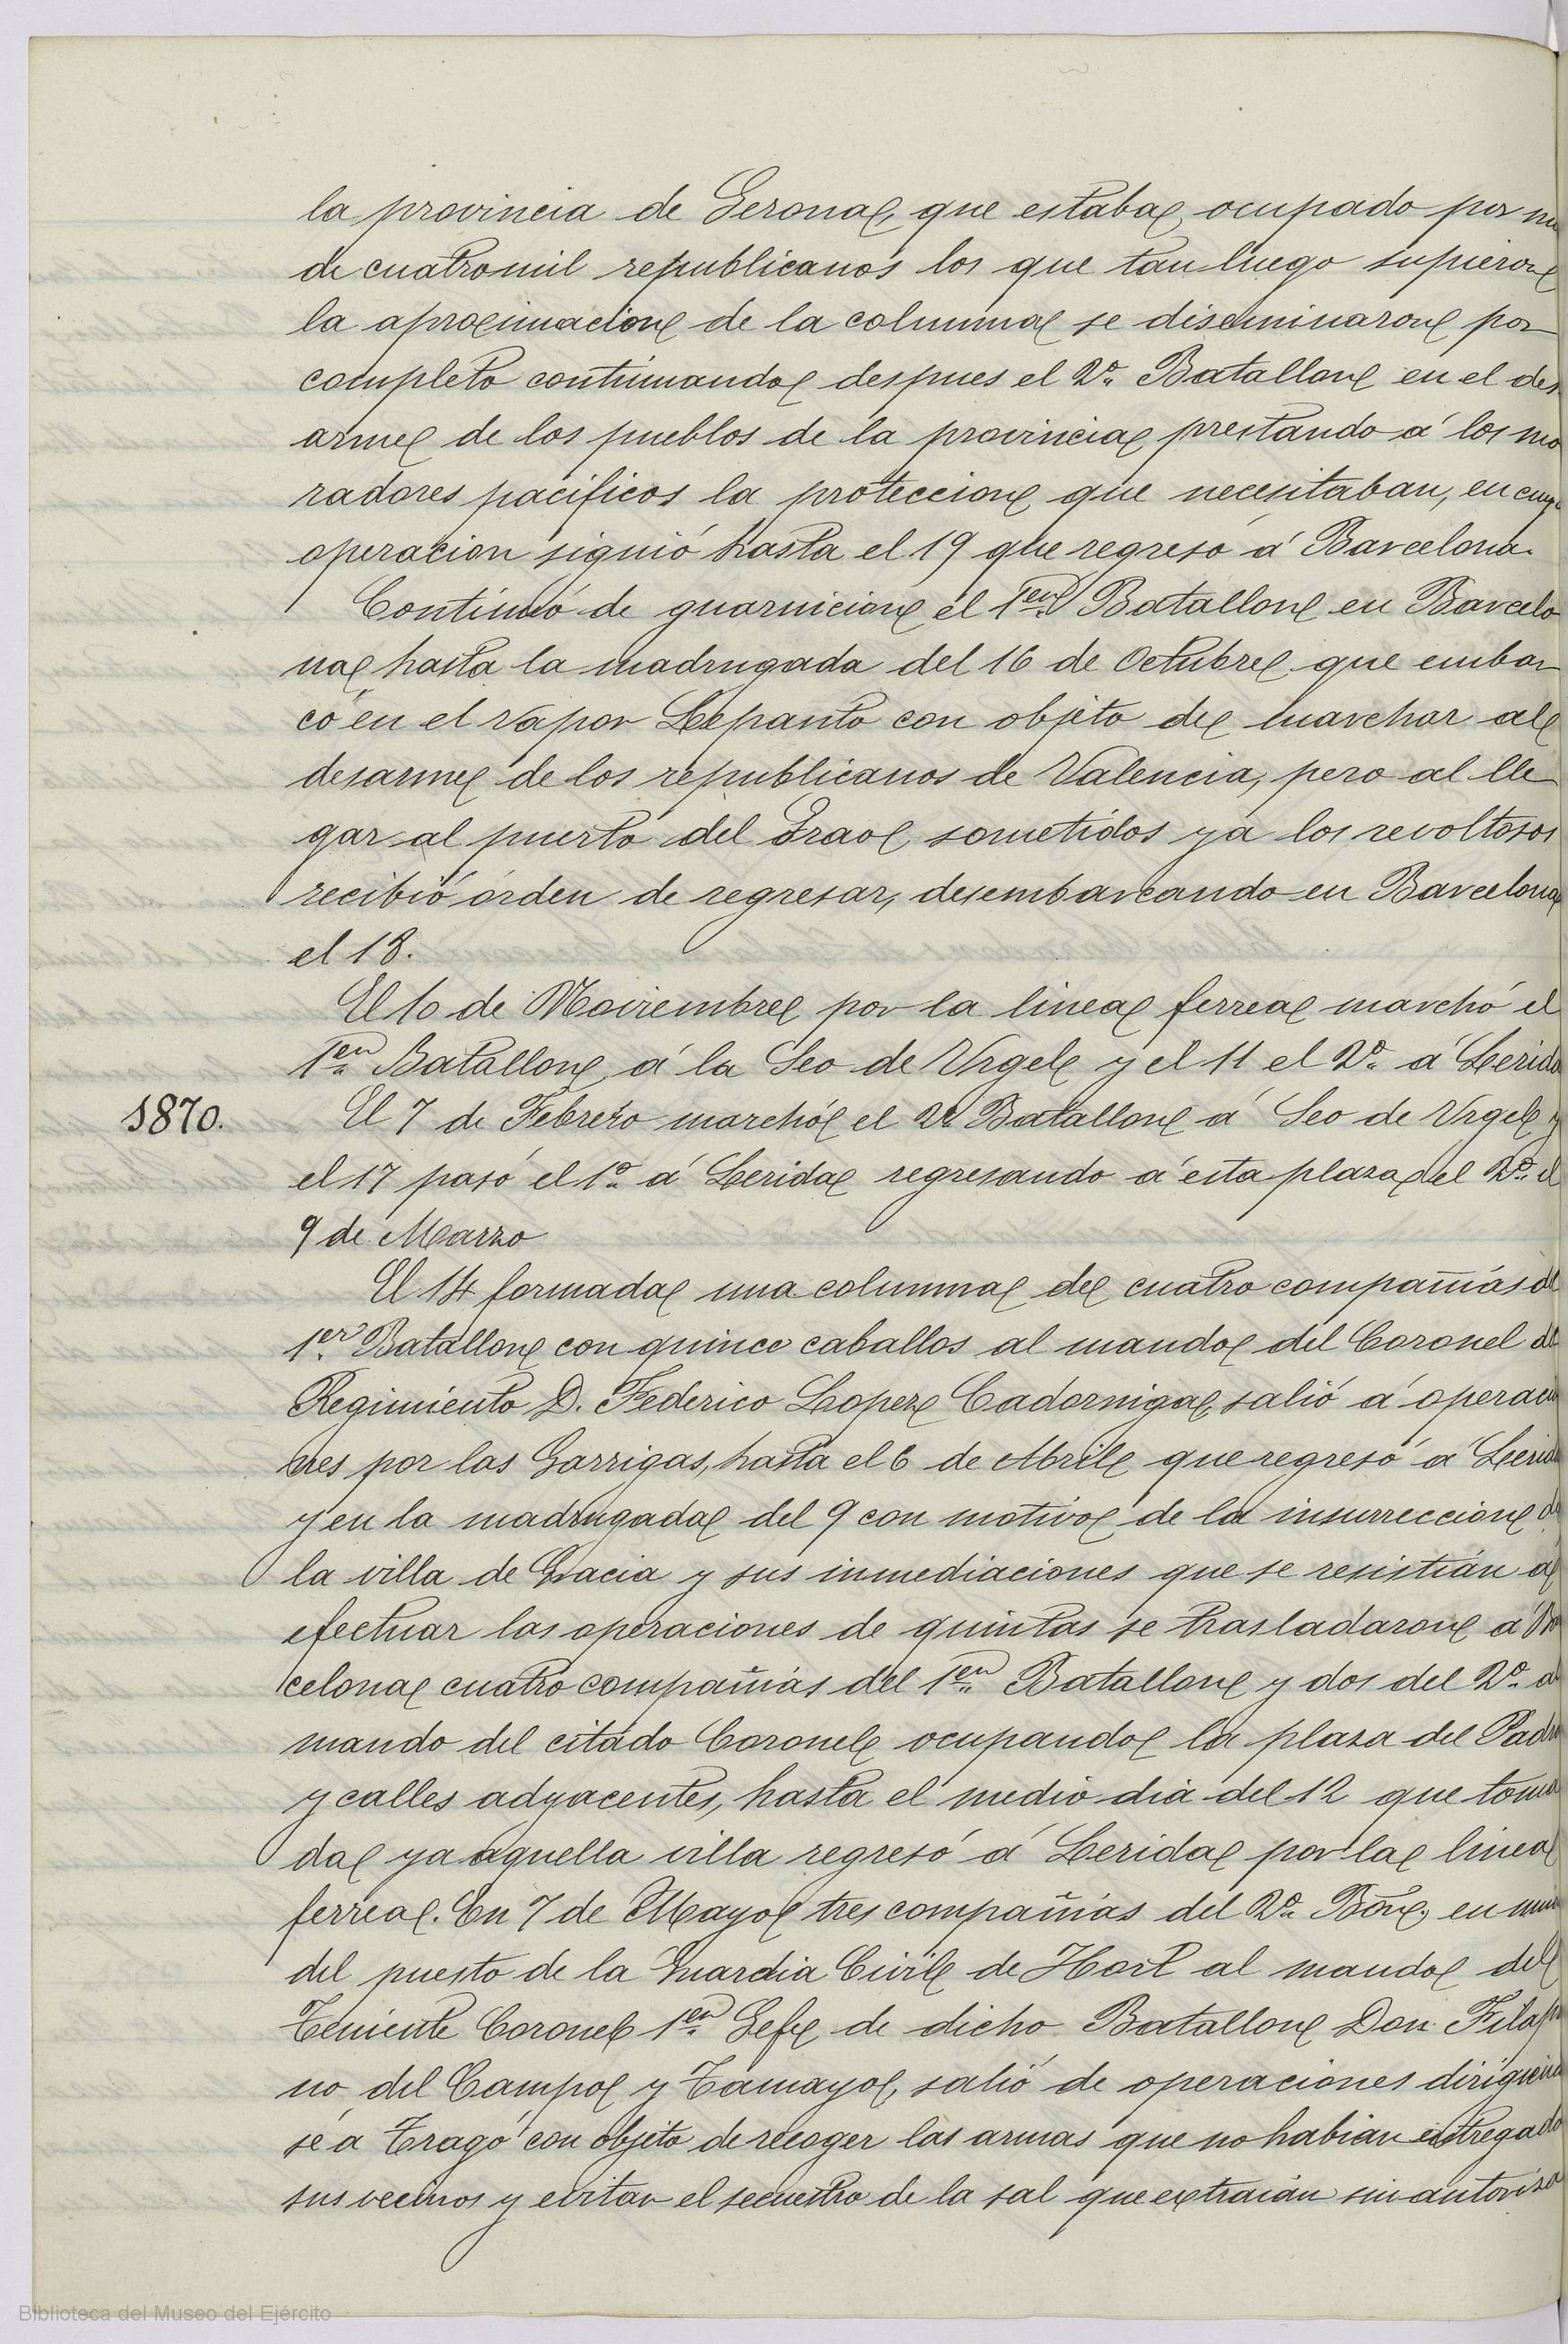 la provincia de Gerona, que estaba ocupado por
de cuatromil republicanos los que tan luego supieron
la aprocsimacion de la columna se diseminaron por
completo continuando despues el 2º Batallon en el des
arme de los pueblos de la provincia prestando á los mo
radores pacificos la proteccion que necesitaban, en cuya
operacion siguió hasta el 19 que regresó á Barcelona.
Continuó de guarnicion el 1er Batallon en Barcelo
na hasta la madrugada del 16 de Octubre que embar
có en el vapor Lepanto con objeto de marchar al
desarme de los republicanos de Valencia, pero al lle
gar al puerto del Grao, sometidos ya los revoltosos
recibió órden de regresar, desembarcando en Barcelona
el 18.
El 10 de Noviembre por la linea ferrea marchó el
1er Batallon á la Seo de Urgel y el 11 el 2º á Lerida
1870. El 7 de Febrero marchó el 2º Batallon á Seo de Urgel y
el 17 pasó el 1º á Lerida regresando á esta plaza el 2º el
9 de Marzo
El 14 formada una columna de cuatro compañias del
1er Batallon con quince caballos al mando del Coronel del
Regimiento D. Federico Lopez Cadorniga, salió á operacio
nes por las Garrigas, hasta el 6 de Abril que regresó á Lerida
y en la madrugada del 9 con motivo de la insurreccion de
la villa de Gracia y sus inmediaciones que se resistian á
efectuar las operaciones de quintas se trasladaron á Bar
celona cuatro compañias del 1er Batallon y dos del 2º al
mando del citado Coronel ocupando la plaza del Padró
y calles adyacentes, hasta el medio dia del 12 que toma
da ya aquella villa regresó á Lerida por la linea
ferrea. En 7 de Mayo tres compañias del 2º Bon, en
del puesto de la Guardia Civil de Hort al mando del
Teniente Coronel 1er Gefe de dicho Batallon Don
no del Campo y Tamayo, salió de operaciones dirigien
se á Tragó con objeto de recoger las armas que no habian entregado
sus vecinos y evitar el secuestro de la sal que extraian sin autoriza
Biblioteca del Museo del Ejército